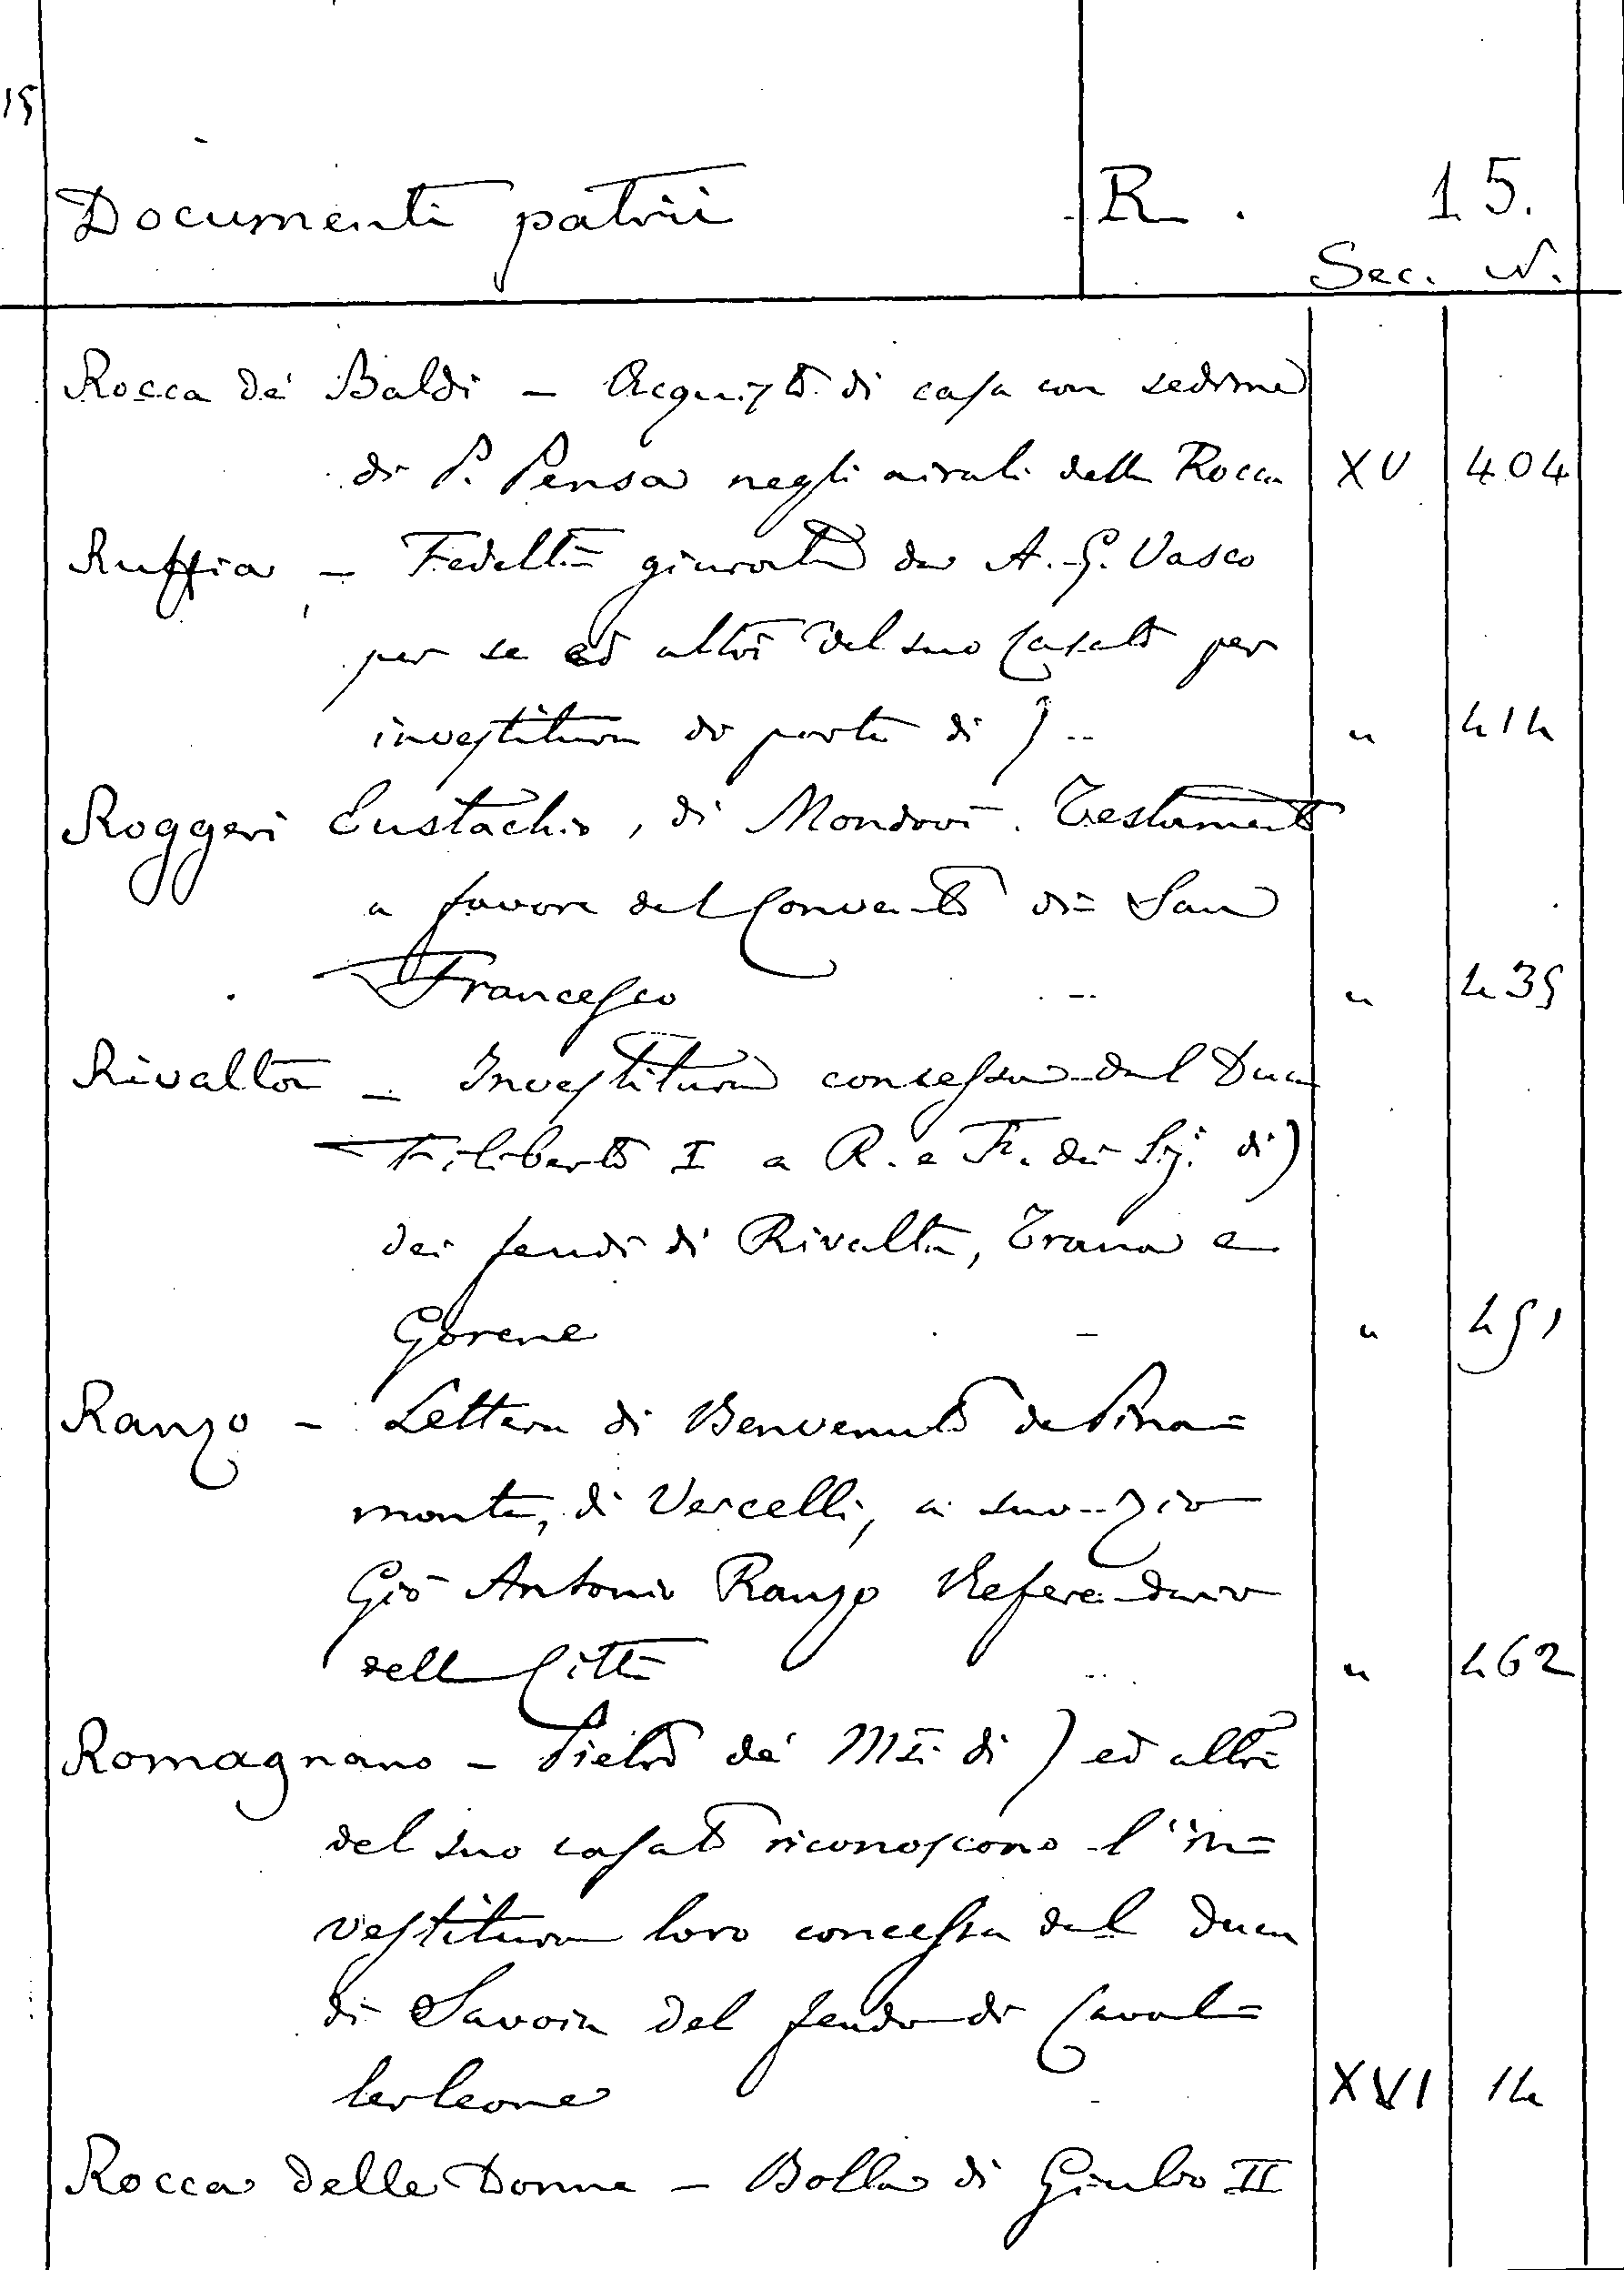 15
Documenti patrii R. 15.
Sec. N.
Rocca de' Baldi - Acquisto di casa con sedime
di P. Pensa negli airali della Rocca XV 404
Ruffia - Fedeltà giurata da A. G. Vasco
per se ed altri del suo Casato per
investitura di parte di ) " 414
Roggeri Eustachio, di Mondovì. Testamento
a favore del Convento di San
Francesco - " 435
Rivalta - Investitura concessa dal Duca
Filiberto I a R. e F. dei Sig.i di )
dei feudi di Rivalta, Trana e
Gorene - " 451
Ranzo - Lettera di Benvenuto de Pina=
monte, di Vercelli, a suo zio
Giò Antonio Ranzo Referendario
della Città " 462
Romagnano - Pietro de' M.si di ) ed altri
del suo casato riconoscono l'in=
vestitura loro concessa dal Duca
di Savoia del feudo di Caval=
lerleone - XVI 14
Rocca delle Donne - Bolla di Giulio II